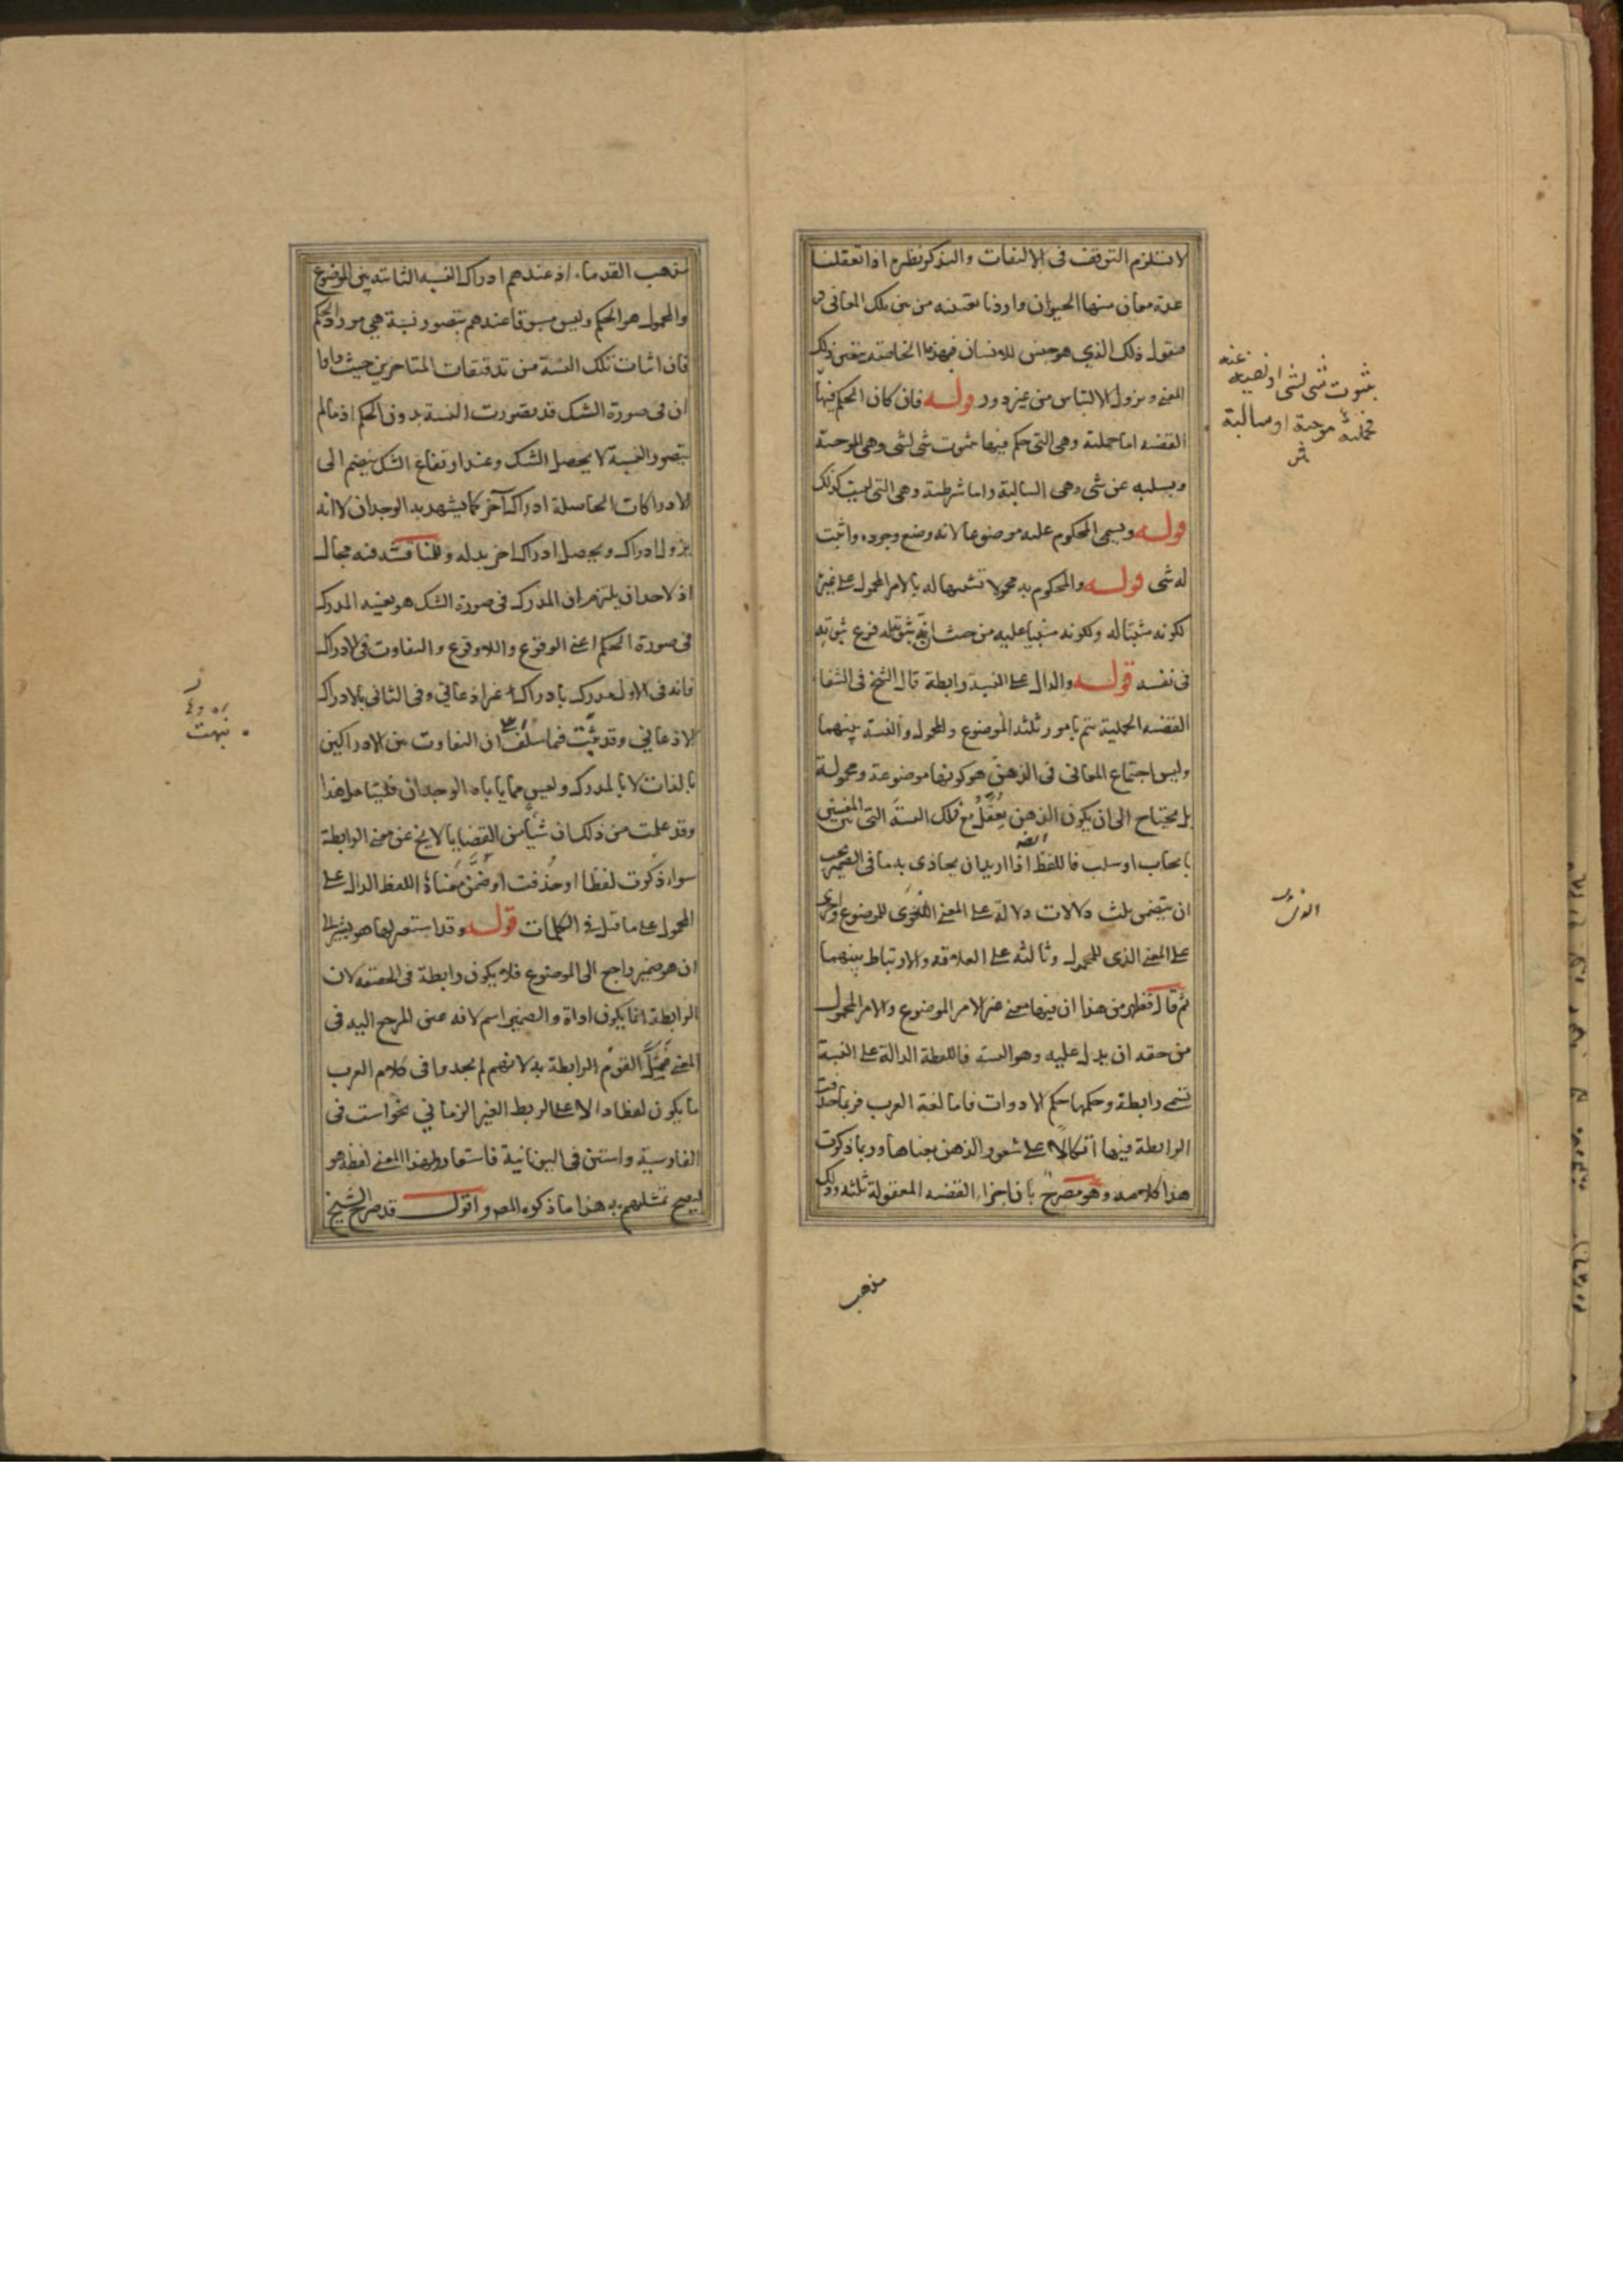 لا تستلزم التوقف فى الالتفات والتذكر نظيره اذا تعقلنا
عدة معان منها الحيوان واردنا تعيينه من بين تلك المعانى
فنقول ذلك الذي هو جنس للانسان فبهذه الخاصة يتعين ذلك
المعنى ويزول الالتباس من غير دور قوله فان كان الحكم فيها
القضيه اما حملية وهى التى حكم فيها بثبوت شى لشى وهى الموجبة
وبسلبه عن شى وهى السالبة واما شرطية وهى التى ليست كذلك
قوله ويسمى المحكوم عليه موضوعا لانه وضع وجوده واثبت
له شى قوله والمحكوم به محمولا تشبيها له بالامر المحمول على غيره
لكونه مثبتا له ولكونه مبنيا عليه من حيث ان ثبوته له فرع ثبوته
فى نفسه قوله والدال على النسبة رابطة قال الشيخ فى الشفا
القضيه الحملية تتم بامور ثلثه الموضوع والمحمول والنسبة بينهما
وليس اجتماع المعانى فى الذهن هو كونها موضوعة ومحمولة
بل يحتاج الى ان يكون الذهن يعقل مع ذلك النسبة التى بين المعنيين
بايجاب او سلب فاللفظ ايضا اذا اريد ان يحاذى به ما فى الضمير يجب
ان يتضمن ثلث دلالات دلالة على المعنى الذى للموضوع واخرى
على المعنى الذى للمحمول وثالثه على العلاقه والارتباط بينهما
ثم قال فظهر من هذا ان فيها معنى غير الامر الموضوع والامر المحمول
من حقه ان يدل عليه وهو النسبه فاللفظة الدالة على النسبة
تسمى رابطة وحكمها حكم الادوات فاما لغة العرب فربما حذفت
الرابطة فيها اتكالا على شعور الذهن بمعناها وربما ذكرت
هذا كلامه وهو مصرح بان اجزاء القضيه المعقولة ثلثه وذلك
مذهب
بثبوت شى لشى او نفيه عنه
فحملية موجبة او سالبة
ش
مذهب القدماء اذ عندهم ادراك النسبه الثابتة بين الموضوع
والمحمول هو الحكم وليس مسبوقا عندهم بتصور نسبة هى مورد الحكم
فان اثبات تلك النسبة من تدقيقات المتاخرين حيث راوا
ان فى صورة الشك قد تصورت النسبة بدون الحكم اذ ما لم
يتصور النسبة لا يحصل الشك وعند ارتفاع الشك ينضم الى
الادراكات الحاصلة ادراك آخر كما يشهد به الوجدان لا انه
يزول ادراك ويحصل ادراك اخر بدله وللمناقشه فيه مجال
اذ لاحد ان يلتزم ان المدرك فى صورة الشك هو بعينه المدرك
فى صورة الحكم اعنى الوقوع واللاوقوع والتفاوت فى الادراك
فانه فى الاول مدرك بادراك غير اذعانى وفى الثانى بالادراك
الاذعانى وقد ثبت فيما سلف ان التفاوت بين الادراكين
بالذات لا بالمدرك وليس مما ياباه الوجدان فليتامل هذا
وقد علمت من ذلك ان شيأ من القضايا لا يخ عن معنى الرابطة
سواء ذكرت لفظا او حذفت او ضمن معناه اللفظ الدال على
المحمول على ما قيل فى الكلمات قوله وقد استعير لها هو يشير الى
ان هو ضمير راجع الى الموضوع فلا يكون رابطة فى الحقيقه لان
الرابطة انما يكون اداة والضمير اسم لانه عين المرجع اليه فى
المعنى القوم الرابطة به لانهم لم يجدوا فى كلام العرب
ما يكون لفظا دالا على الربط الغير الزمانى نحو است فى
الفارسية واستن فى اليونانية فاستعاروا لهذا المعنى لفظه هو
ليصح تمثيلهم به هذا ما ذكره المص واقول قد صرح الشيخ